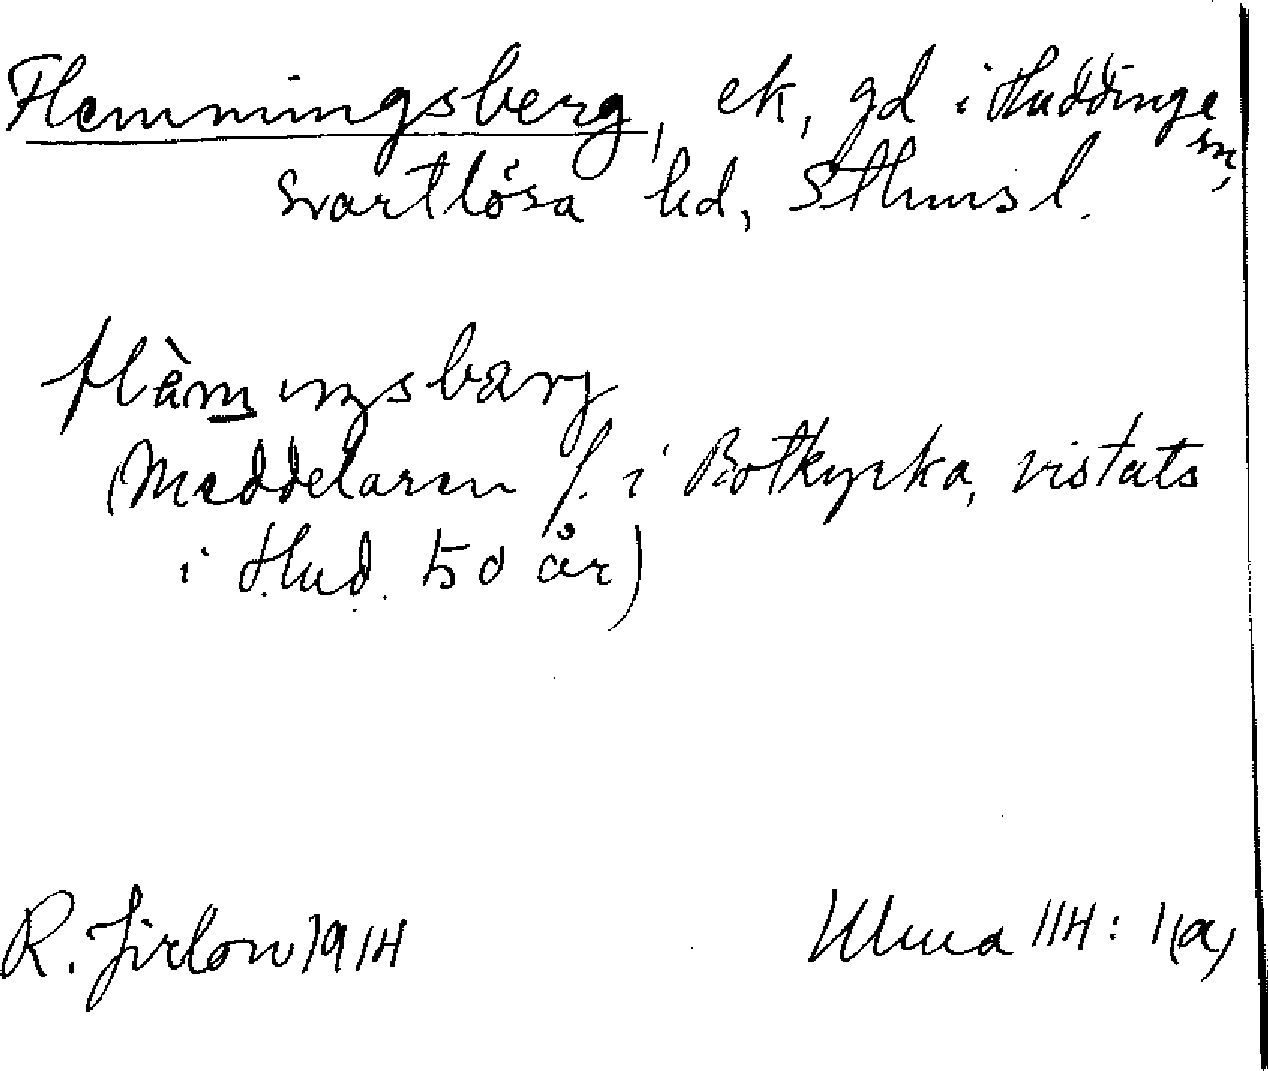 Flemmingsberg, ek, gd i Huddinge sn,
Svartlösa hd, Sthms l.
flæ̀m̲ıŋsbærj
(Meddelaren f. i Botkyrka, vistats
i Hud. 50 år)
R. Jirlow 1914
Uluua 114: 1(a)